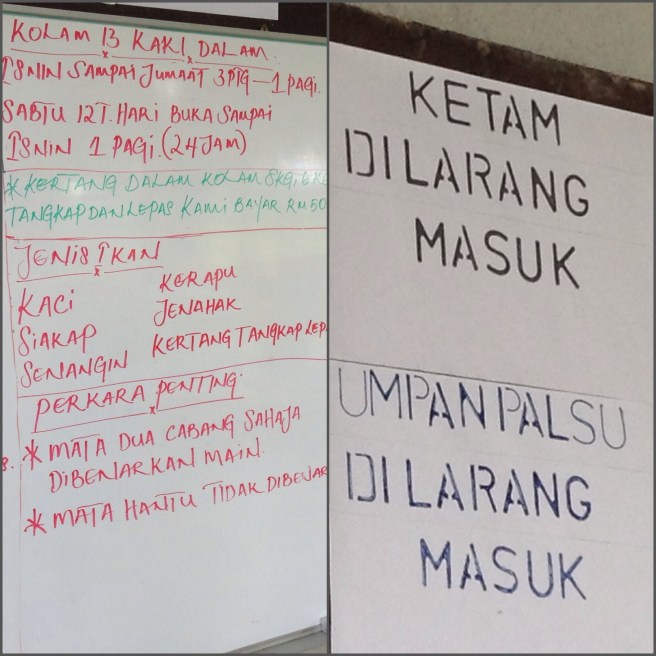 KOLAM 13 KAKI DALAM.
ISNIN SAMPAI JUMAAT 3PTG - 1 PAGI.
SABTU 12T. HARI BUKA SAMPAI
ISNIN 1 PAGI. (24 JAM)
* KERTANG DALAM KOLAM 8KG,
TANGKAP DAN LEPAS KAMI BAYAR RM50
JENIS IKAN
KACI
SIAKAP
SENANGIN
KERAPU
JENAHAK
KERTANG TANGKAP LEP
PERKARA PENTING.
* MATA DUA CABANG SAHAJA
DIBENARKAN MAIN.
* MATA HANTU TIDAK DIBENAR
KETAM
DILARANG
MASUK
UMPAN PALSU
DILARANG
MASUK